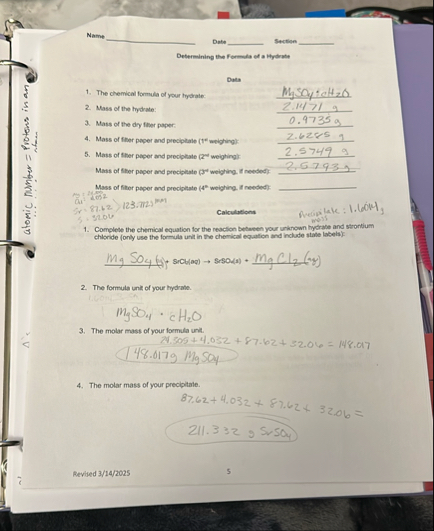 Name
Date Section
Determining the Formula of a Hydrate
Data
1. The chemical formula of your hydrate:
2. Mass of the hydrate: 2.1171 g
3. Mass of the dry filter paper: 0.9735 g
4. Mass of filter paper and precipitate (1st weighing): 2.6285 g
5. Mass of filter paper and precipitate (2nd weighing): 2.5749 g
Mass of filter paper and precipitate (3rd weighing, if needed): 2.5793 g
Mass of filter paper and precipitate (4th weighing, if needed):
atomic number = protons in an
Calculations
Precipitate:
mass
1. Complete the chemical equation for the reaction between your unknown hydrate and strontium
chloride (only use the formula unit in the chemical equation and include state labels):
+ SrCl₂(aq) → SrSO₄(s) + MgCl₂(aq)
2. The formula unit of your hydrate.
MgSO₄ · cH₂O
3. The molar mass of your formula unit.
24.305 + 4.032 + 87.62 + 32.06 = 148.017
148.017g MgSO₄
4. The molar mass of your precipitate.
87.62 + 4.032 + 87.62 + 32.06 =
211.332 g SrSO₄
Revised 3/14/2025
5